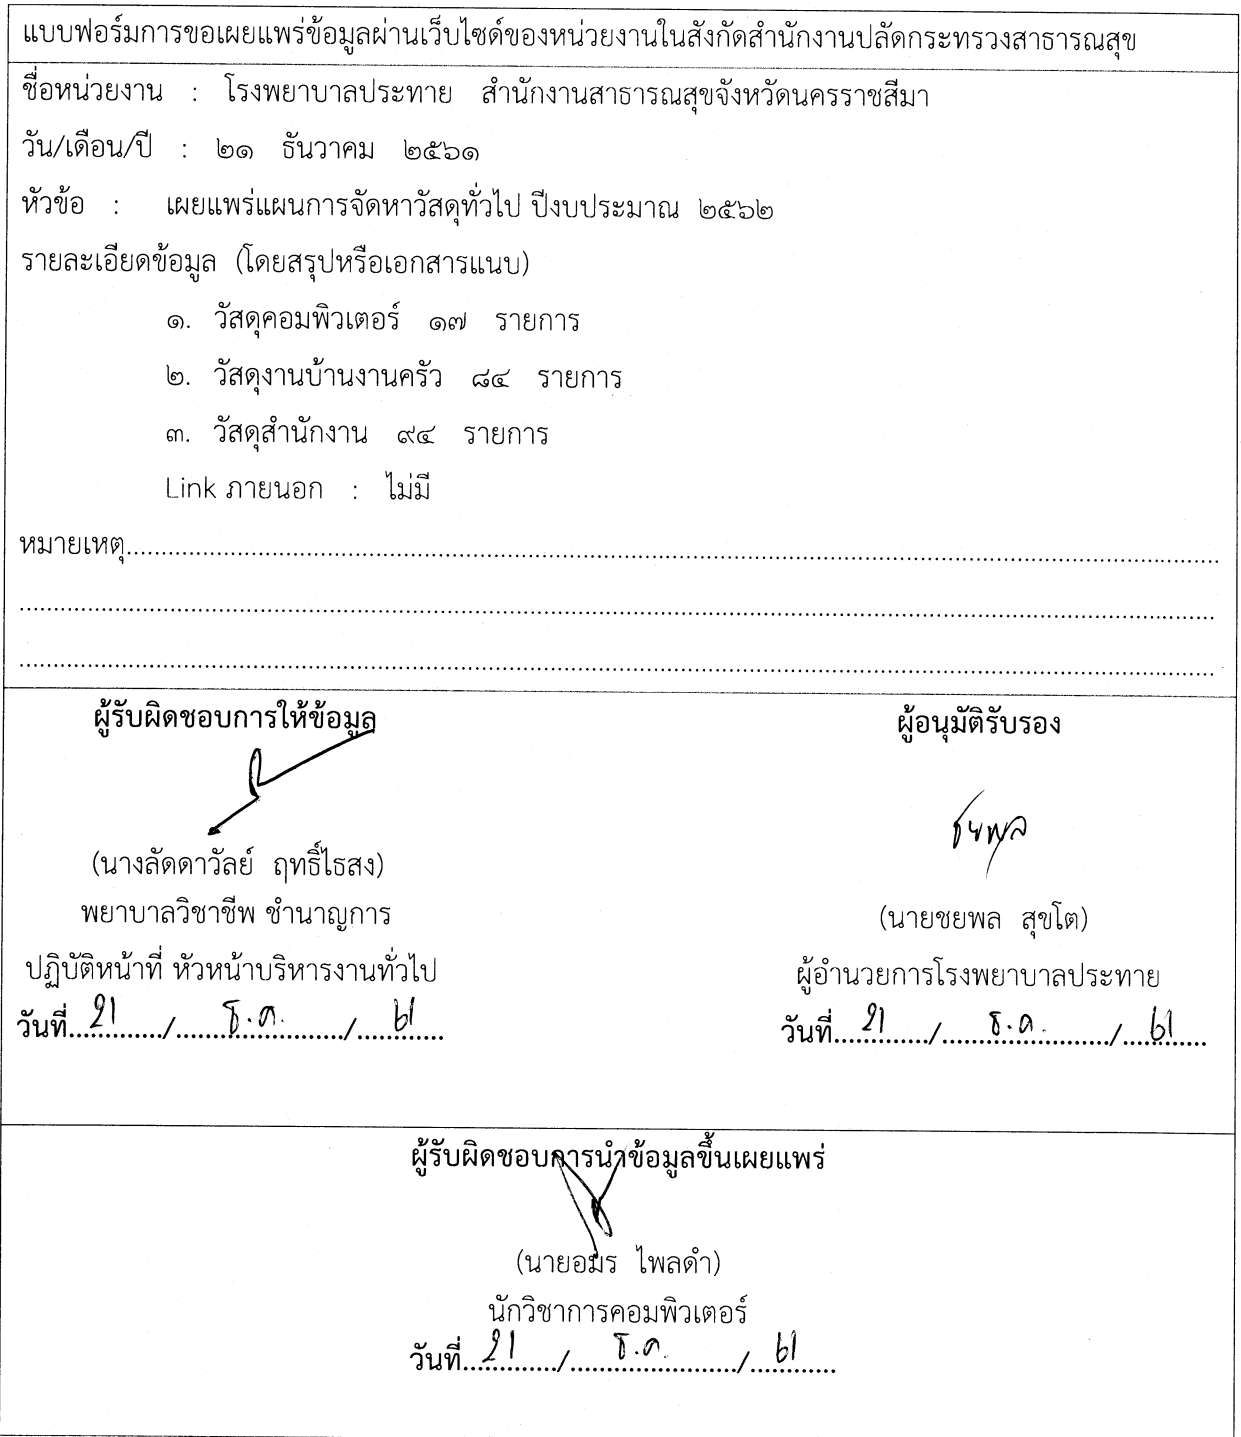 แบบฟอร์มการขอเผยแพร่ข้อมูลผ่านเว็บไซต์ของหน่วยงานในสังกัดสำนักงานปลัดกระทรวงสาธารณสุข
ชื่อหน่วยงาน : โรงพยาบาลประทาย สำนักงานสาธารณสุขจังหวัดนครราชสีมา
วัน/เดือน/ปี : ๒๑ ธันวาคม ๒๕๖๑
หัวข้อ : เผยแพร่แผนการจัดหาวัสดุทั่วไป ปีงบประมาณ ๒๕๖๒
รายละเอียดข้อมูล (โดยสรุปหรือเอกสารแนบ)
๑. วัสดุคอมพิวเตอร์ ๑๗ รายการ
๒. วัสดุงานบ้านงานครัว ๘๔ รายการ
๓. วัสดุสำนักงาน ๙๔ รายการ
Link ภายนอก : ไม่มี
หมายเหตุ
ผู้รับผิดชอบการให้ข้อมูล
(นางลัดดาวัลย์ ฤทธิ์ไธสง)
พยาบาลวิชาชีพ ชำนาญการ
ปฏิบัติหน้าที่ หัวหน้าบริหารงานทั่วไป
วันที่ 21 / ธ.ค. / 61
ผู้อนุมัติรับรอง
ชยพล
(นายชยพล สุขโต)
ผู้อำนวยการโรงพยาบาลประทาย
วันที่ 21 / ธ.ค. / 61
ผู้รับผิดชอบการนำข้อมูลขึ้นเผยแพร่
(นายอมร ไพลดำ)
นักวิชาการคอมพิวเตอร์
วันที่ 21 / ธ.ค. / 61